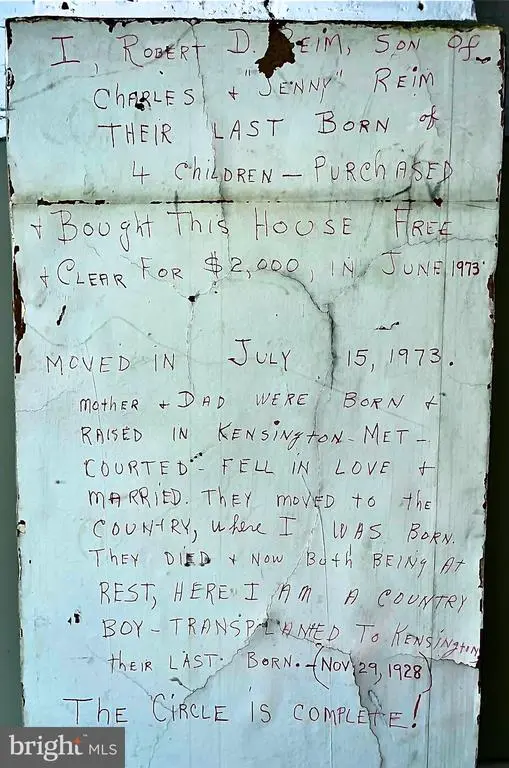 I, ROBERT D. REIM, SON of
CHARLES & "JENNY" REIM
THEIR LAST BORN of
4 CHILDREN – PURCHASED
& BOUGHT THIS HOUSE FREE
& CLEAR FOR $2,000, IN JUNE 1973
MOVED IN JULY 15, 1973.
MOTHER & DAD WERE BORN &
RAISED IN KENSINGTON – MET –
COURTED – FELL IN LOVE &
MARRIED. THEY MOVED to the
COUNTRY, where I WAS BORN.
THEY DIED & NOW Both BEING At
REST, HERE I AM A COUNTRY
BOY – TRANSPLANTED TO KENSINGTON
their LAST BORN. – (NOV. 29, 1928)
THE CIRCLE IS COMPLETE!
bright MLS